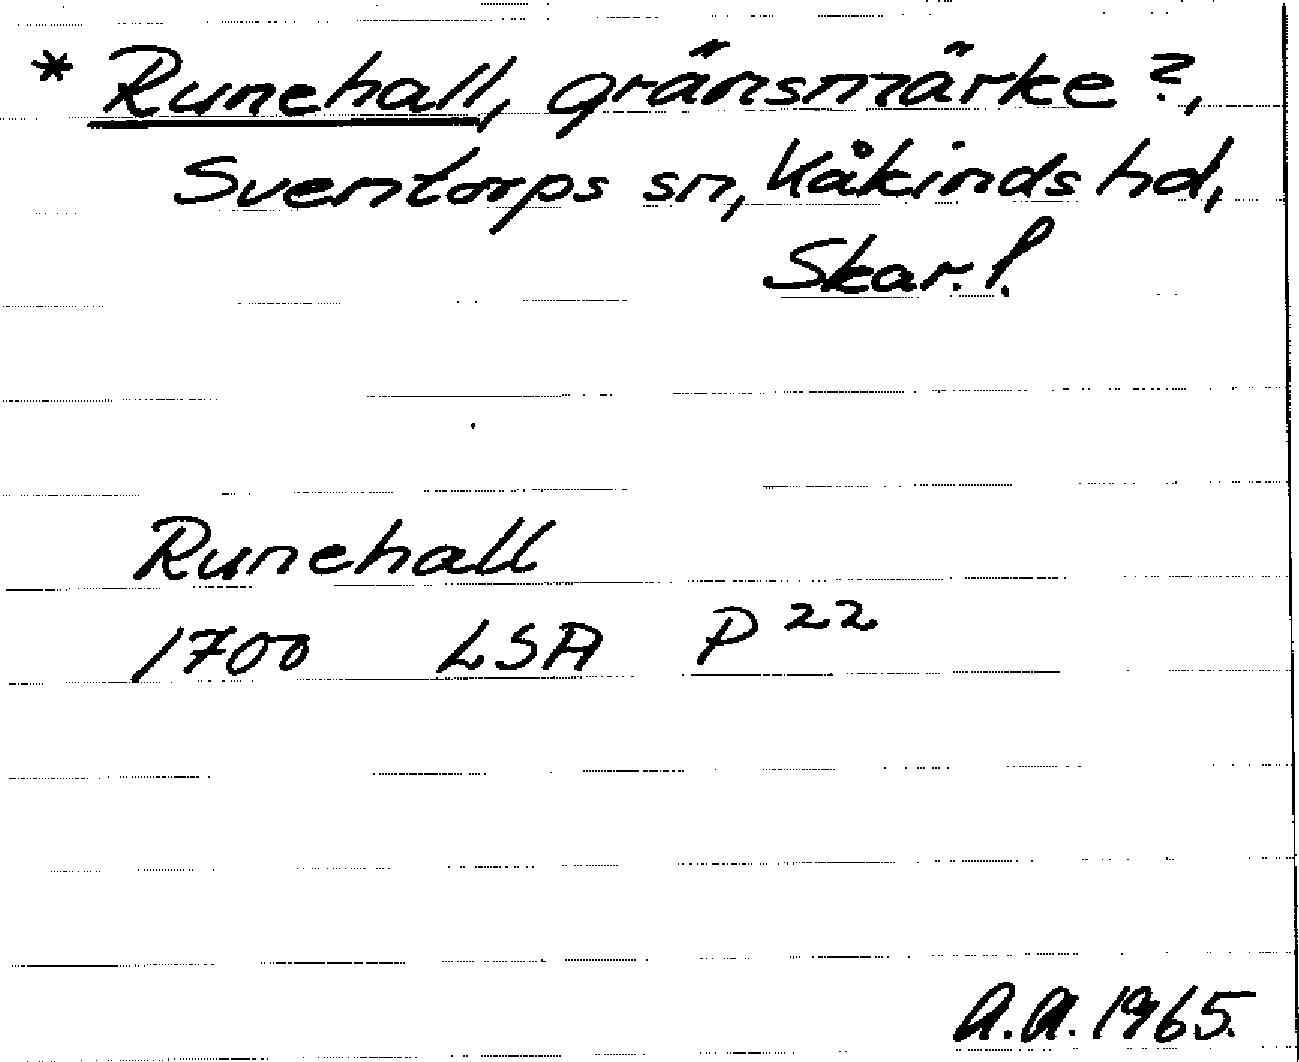 * Runehall, gränsmärke ?,
Sventorps sn, Kåkinds hd,
Skar. l.
Runehall
1700 LSA P 22
A.A. 1965.